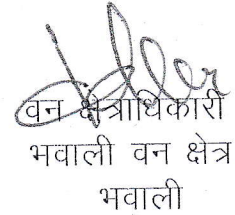 वन क्षेत्राधिकारी
भवाली वन क्षेत्र
भवाली